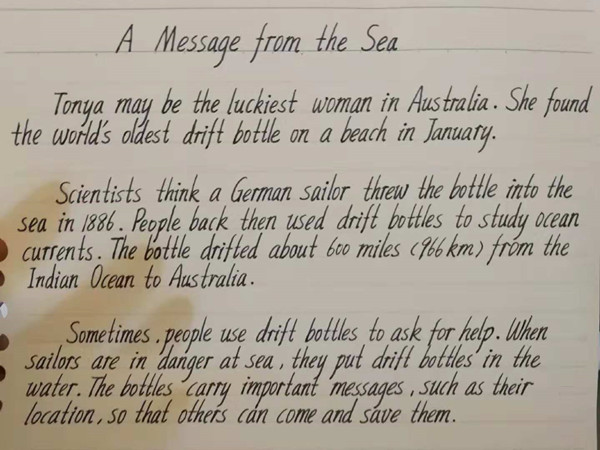 A Message from the Sea
Tonya may be the luckiest woman in Australia. She found
the world's oldest drift bottle on a beach in January.
Scientists think a German sailor threw the bottle into the
sea in 1886. People back then used drift bottles to study ocean
currents. The bottle drifted about 600 miles (966km) from the
Indian Ocean to Australia.
Sometimes, people use drift bottles to ask for help. When
sailors are in danger at sea, they put drift bottles in the
water. The bottles carry important messages, such as their
location, so that others can come and save them.